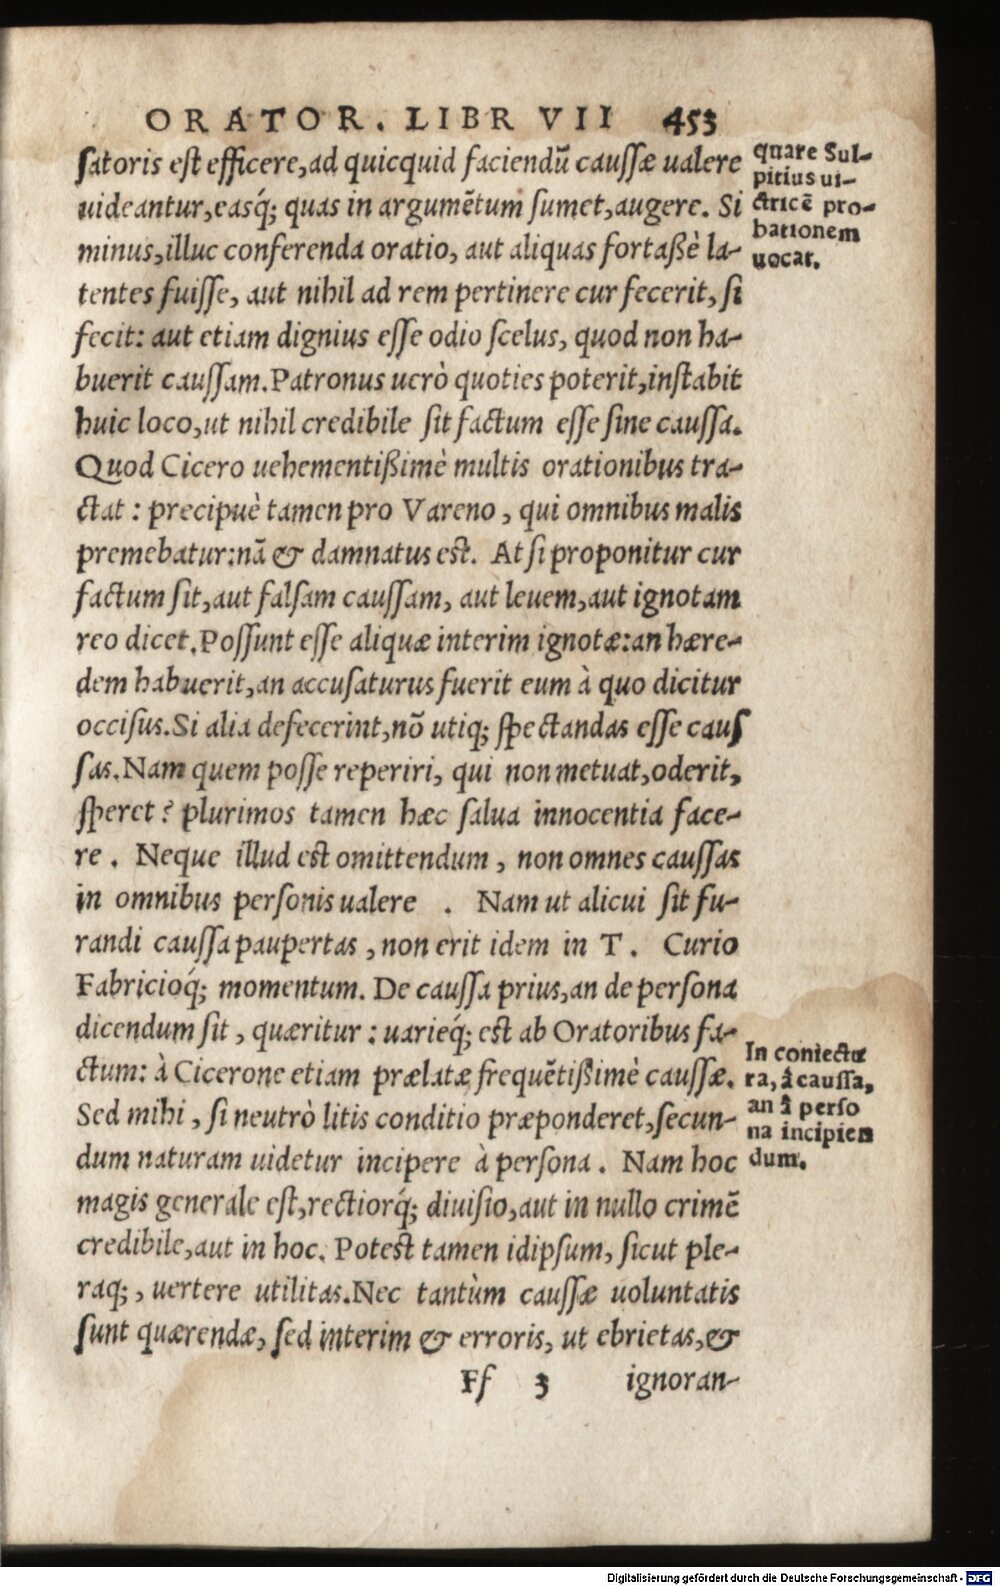 ORATOR. LIBR VII 453
satoris est efficere, ad quicquid faciendū caussæ ualere
uideantur, easq́; quas in argumētum sumet, augere. Si
minus, illuc conferenda oratio, aut aliquas fortaßè la-
tentes fuisse, aut nihil ad rem pertinere cur fecerit, si
fecit: aut etiam dignius esse odio scelus, quod non ha-
buerit caussam. Patronus uerò quoties poterit, instabit
huic loco, ut nihil credibile sit factum esse sine caussa.
Quod Cicero uehementißimè multis orationibus tra-
ctat: precipuè tamen pro Vareno, qui omnibus malis
premebatur: nā & damnatus est. At si proponitur cur
factum sit, aut falsam caussam, aut leuem, aut ignotam
reo dicet. Possunt esse aliquæ interim ignotæ: an hære-
dem habuerit, an accusaturus fuerit eum à quo dicitur
occisus. Si alia defecerint, nō utiq; spectandas esse caus
sas. Nam quem posse reperiri, qui non metuat, oderit,
speret? plurimos tamen hæc salua innocentia face-
re. Neque illud est omittendum, non omnes caussas
in omnibus personis ualere. Nam ut alicui sit fu-
randi caussa paupertas, non erit idem in T. Curio
Fabricioq́; momentum. De caussa prius, an de persona
dicendum sit, quæritur: uarieq́; est ab Oratoribus fa-
ctum: à Cicerone etiam prælatæ frequētißimè caussæ.
Sed mihi, si neutrò litis conditio præponderet, secun-
dum naturam uidetur incipere à persona. Nam hoc
magis generale est, rectiorq́; diuisio, aut in nullo crimē
credibile, aut in hoc. Potest tamen idipsum, sicut ple-
raq;, uertere utilitas. Nec tantùm caussæ uoluntatis
sunt quærendæ, sed interim & erroris, ut ebrietas, &
Ff 3 ignoran-
quare Sul-
pitius ui-
ctricē pro-
bationem
uocat.
In coniectu
ra, â caussa,
an â perso
na incipien
dum.
Digitalisierung gefördert durch die Deutsche Forschungsgemeinschaft - DFG